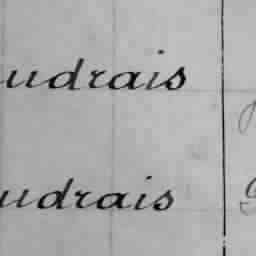 udrais
udrais